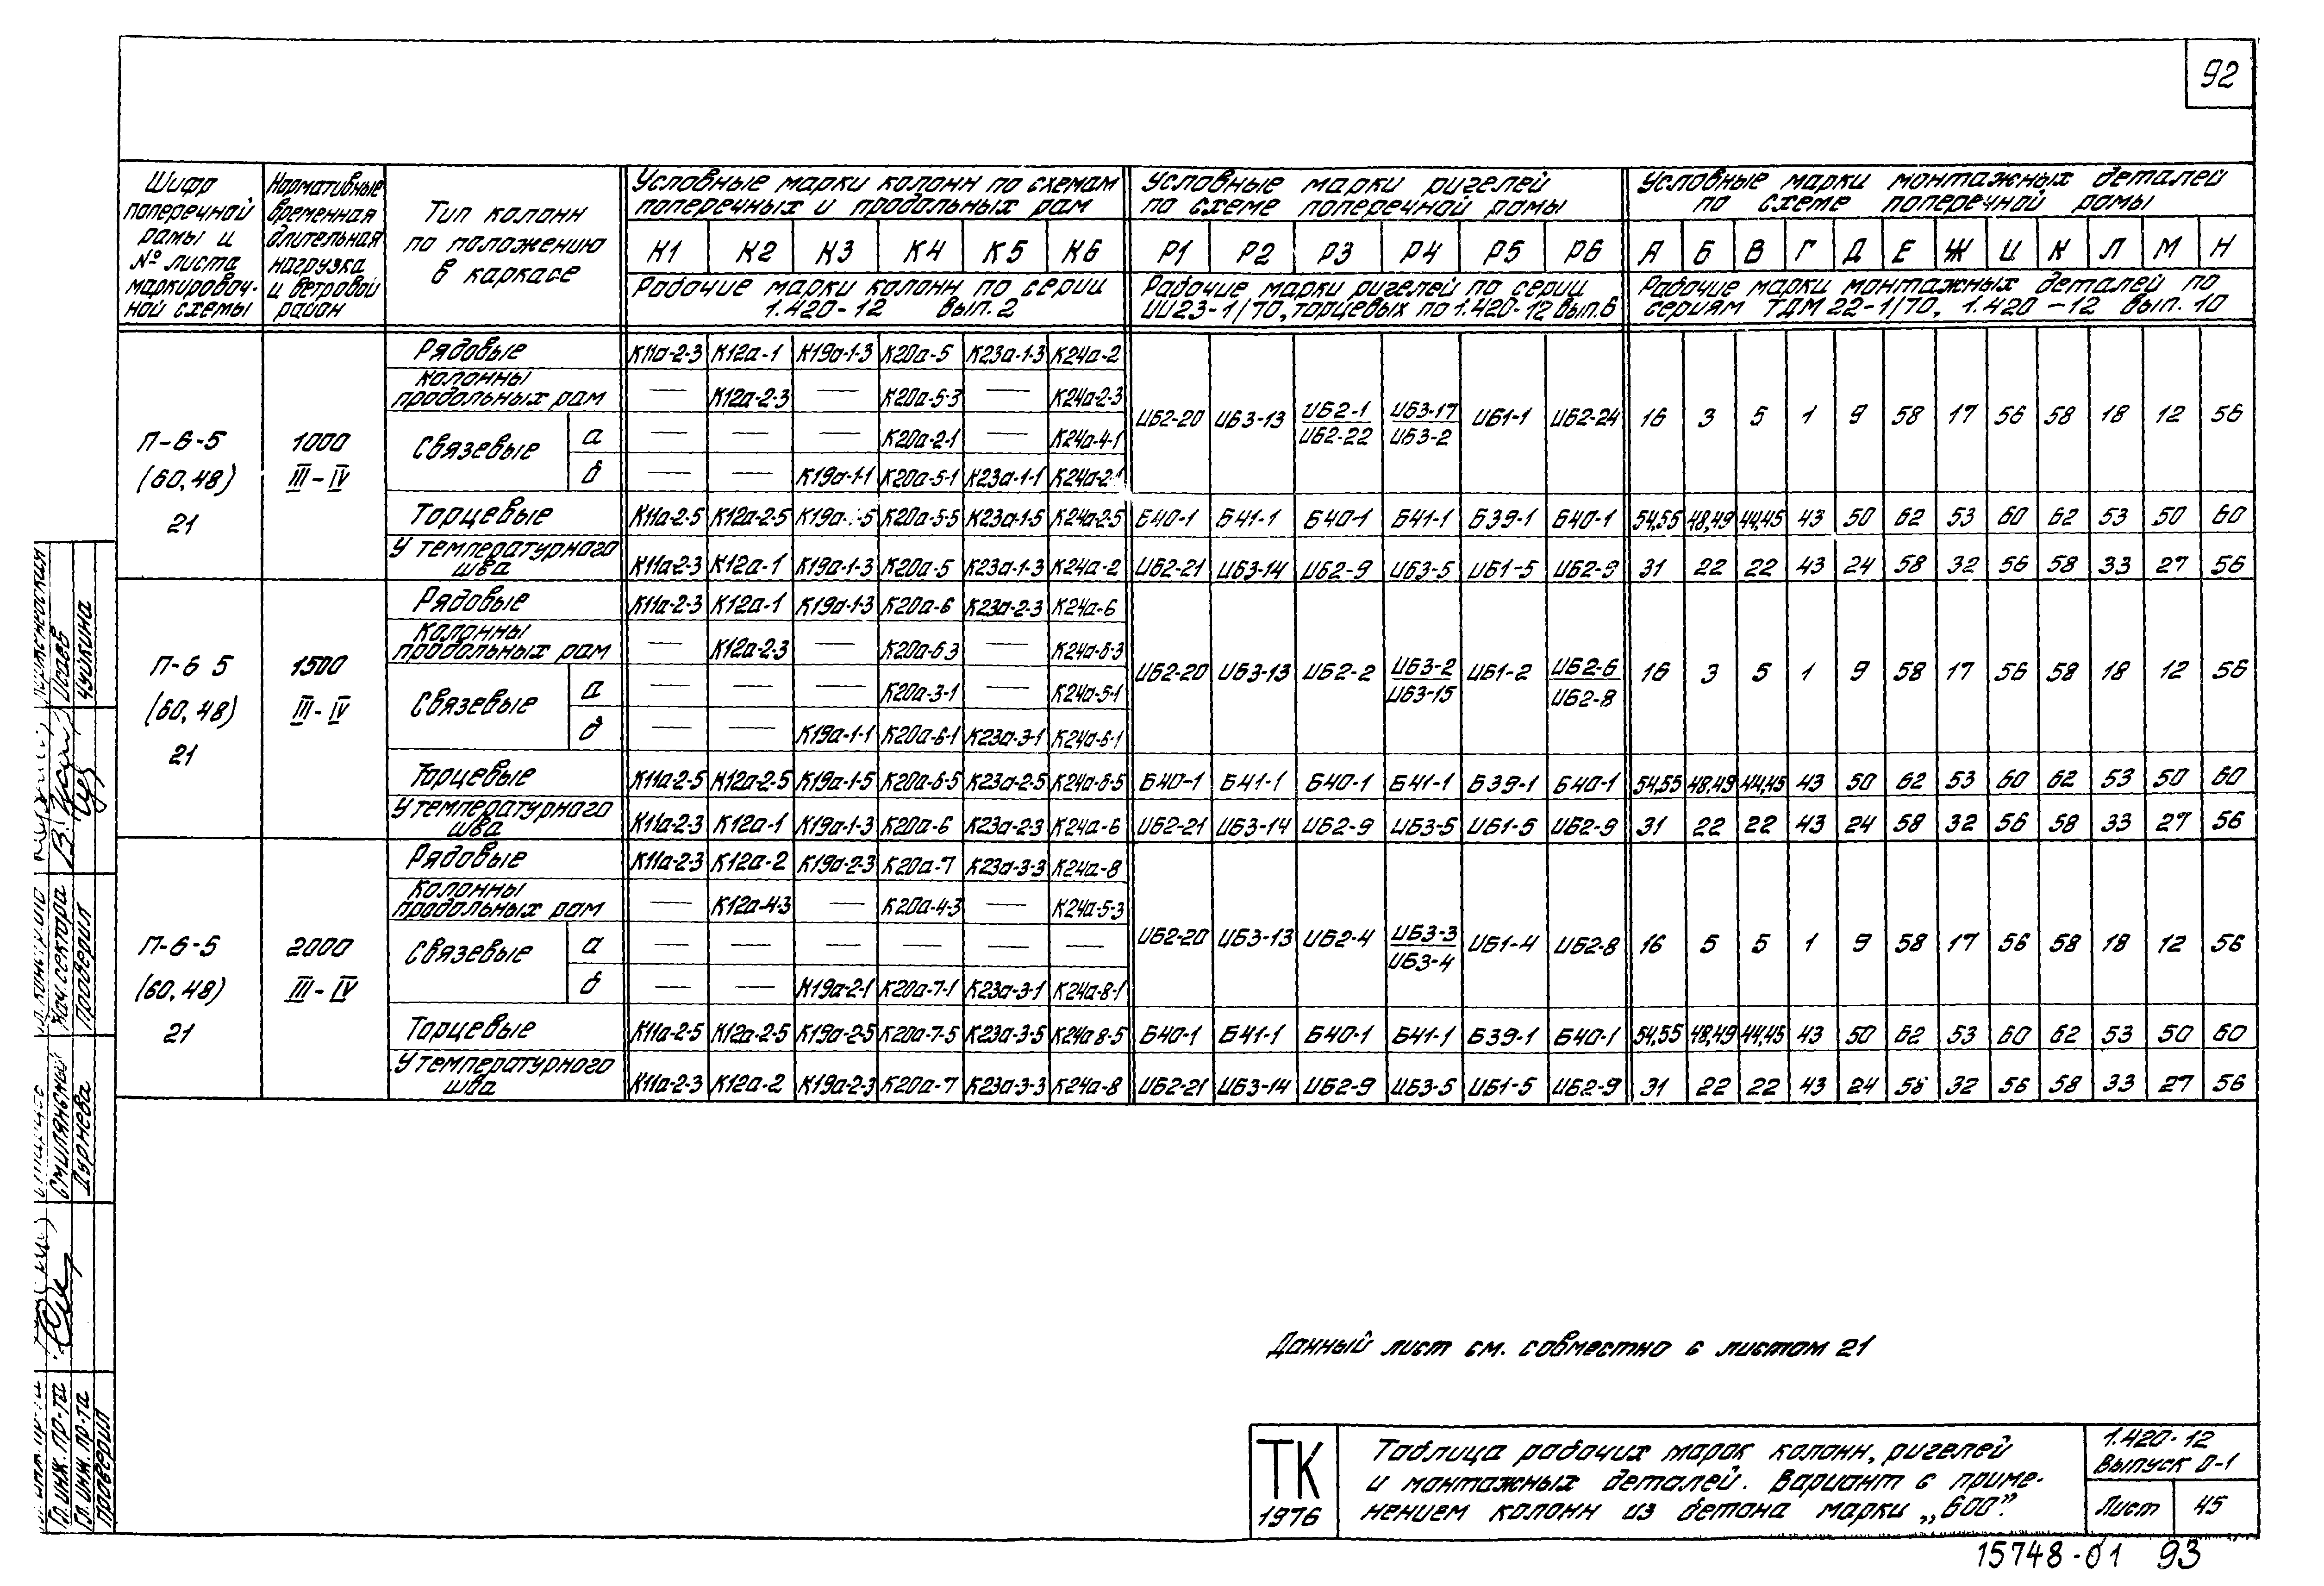 92
Шифр поперечной рамы и № листа маркировоч-ной схемы
Нормативные временная длительная нагрузка и ветровой район
Тип колонн по положению в каркасе
Условные марки колонн по схемам поперечных и продольных рам
Условные марки ригелей по схеме поперечной рамы
Условные марки монтажных деталей по схеме поперечной рамы
К1 К2 К3 К4 К5 К6 Р1 Р2 Р3 Р4 Р5 Р6 А Б В Г Д Е Ж И К Л М Н
Рабочие марки колонн по серии 1.420-12 вып. 2
Рабочие марки ригелей по серии ИИ23-1/70, торцевых по 1.420-12 вып.6
Рабочие марки монтажных деталей по сериям ТДМ 22-1/70, 1.420-12 вып. 10
П-6-5 (60,48) 21
1000 III-IV
Рядовые К11а-2-3 К12а-1 К19а-1-3 К20а-5 К23а-1-3 К24а-2
Колонны продольных рам — К12а-2-3 — К20а-5-3 — К24а-2-3
ИБ2-20 ИБ3-13 ИБ2-1/ИБ2-22 ИБ3-17/ИБ3-2 ИБ1-1 ИБ2-24 16 3 5 1 9 58 17 56 58 18 12 56
Связевые а — — — К20а-2-1 — К24а-4-1
б — — К19а-1-1 К20а-5-1 К23а-1-1 К24а-2-1
Торцевые К11а-2-5 К12а-2-5 К19а-1-5 К20а-5-5 К23а-1-5 К24а-2-5 Б40-1 Б41-1 Б40-1 Б41-1 Б39-1 Б40-1 54,55 48,49 44,45 43 50 62 53 60 62 53 50 60
У температурного шва К11а-2-3 К12а-1 К19а-1-3 К20а-5 К23а-1-3 К24а-2 ИБ2-21 ИБ3-14 ИБ2-9 ИБ3-5 ИБ1-5 ИБ2-9 31 22 22 43 24 58 32 56 58 33 27 56
П-6 5 (60,48) 21
1500 III-IV
Рядовые К11а-2-3 К12а-1 К19а-1-3 К20а-6 К23а-2-3 К24а-6
Колонны продольных рам — К12а-2-3 — К20а-6 3 — К24а-6-3
ИБ2-20 ИБ3-13 ИБ2-2 ИБ3-2/ИБ3-15 ИБ1-2 ИБ2-6/ИБ2-8 16 3 5 1 9 58 17 56 58 18 12 56
Связевые а — — — К20а-3-1 — К24а-5-1
б — — К19а-1-1 К20а-6-1 К23а-3-1 К24а-6-1
Торцевые К11а-2-5 К12а-2-5 К19а-1-5 К20а-6-5 К23а-2-5 К24а-6-5 Б40-1 Б41-1 Б40-1 Б41-1 Б39-1 Б40-1 54,55 48,49 44,45 43 50 62 53 60 62 53 50 60
У температурного шва К11а-2-3 К12а-1 К19а-1-3 К20а-6 К23а-2-3 К24а-6 ИБ2-21 ИБ3-14 ИБ2-9 ИБ3-5 ИБ1-5 ИБ2-9 31 22 22 43 24 58 32 56 58 33 27 56
П-6-5 (60,48) 21
2000 III-IV
Рядовые К11а-2-3 К12а-2 К19а-2-3 К20а-7 К23а-3-3 К24а-8
Колонны продольных рам — К12а-4-3 — К20а-4-3 — К24а-5-3
ИБ2-20 ИБ3-13 ИБ2-4 ИБ3-3/ИБ3-4 ИБ1-4 ИБ2-8 16 5 5 1 9 58 17 56 58 18 12 56
Связевые а — — — — — —
б — — К19а-2-1 К20а-7-1 К23а-3-1 К24а-8-1
Торцевые К11а-2-5 К12а-2-5 К19а-2-5 К20а-7-5 К23а-3-5 К24а 8-5 Б40-1 Б41-1 Б40-1 Б41-1 Б39-1 Б40-1 54,55 48,49 44,45 43 50 62 53 60 62 53 50 60
У температурного шва К11а-2-3 К12а-2 К19а-2-3 К20а-7 К23а-3-3 К24а-8 ИБ2-21 ИБ3-14 ИБ2-9 ИБ3-5 ИБ1-5 ИБ2-9 31 22 22 43 24 58 32 56 58 33 27 56
Данный лист см. совместно с листом 21
ТК 1976
Таблица рабочих марок колонн, ригелей
и монтажных деталей. Вариант с приме-
нением колонн из бетона марки „600".
1.420-12
Выпуск 0-1
Лист 45
15748-01 93
Гл. инж. пр-та
Гл. инж. пр-та
Проверил
Смилянский
Дурнева
Нач. сектора
Проверил
Исаев
Чуйкина